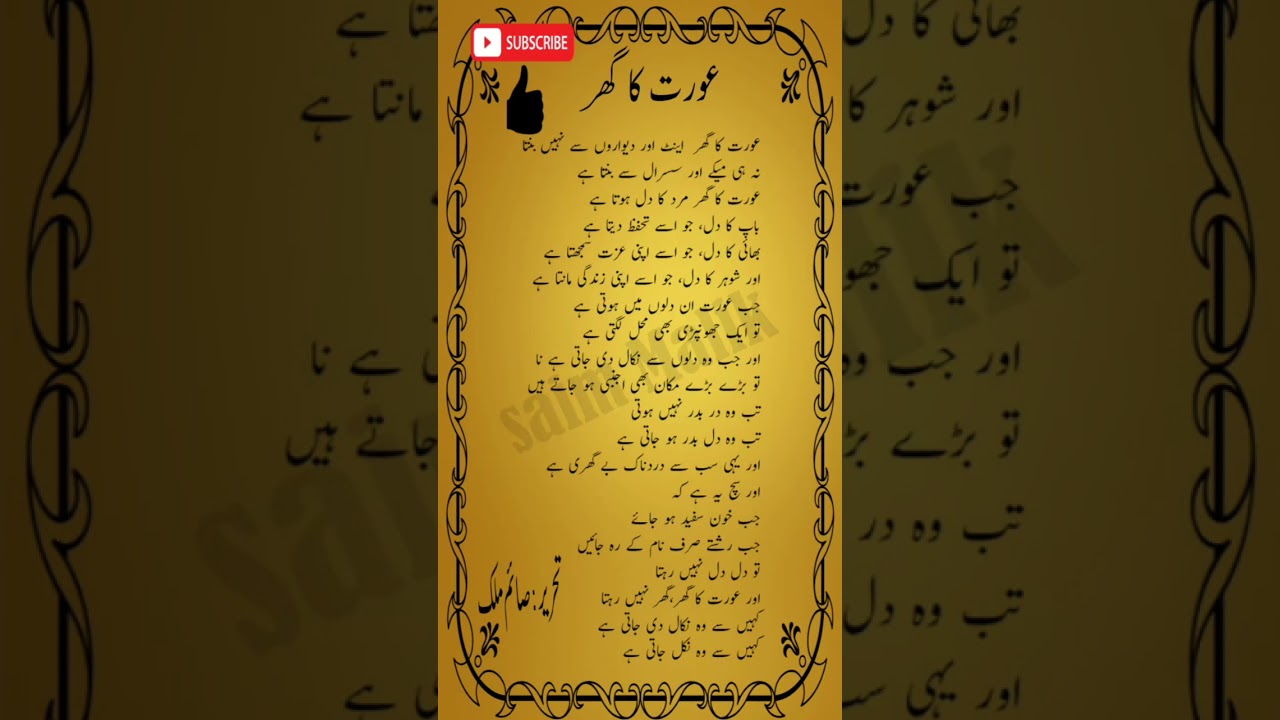 SUBSCRIBE
عورت کا گھر
عورت کا گھر اینٹ اور دیواروں سے نہیں بنتا
نہ ہی میکے اور سسرال سے بنتا ہے
عورت کا گھر مرد کا دل ہوتا ہے
باپ کا دل، جو اسے تحفظ دیتا ہے
بھائی کا دل، جو اسے اپنی عزت سمجھتا ہے
اور شوہر کا دل، جو اسے اپنی زندگی مانتا ہے
جب عورت ان دلوں میں ہوتی ہے
تو ایک جھونپڑی بھی محل لگتی ہے
اور جب وہ دلوں سے نکال دی جاتی ہے نا
تو بڑے بڑے مکان بھی اجنبی ہو جاتے ہیں
تب وہ در بدر نہیں ہوتی
تب وہ دل بدر ہو جاتی ہے
اور یہی سب سے دردناک بے گھری ہے
اور سچ یہ ہے کہ
جب خون سفید ہو جائے
جب رشتے صرف نام کے رہ جائیں
تو دل دل نہیں رہتا
اور عورت کا گھر،گھر نہیں رہتا
کہیں سے وہ نکال دی جاتی ہے
کہیں سے وہ نکل جاتی ہے
تحریر:صائم ملک
saim Malik